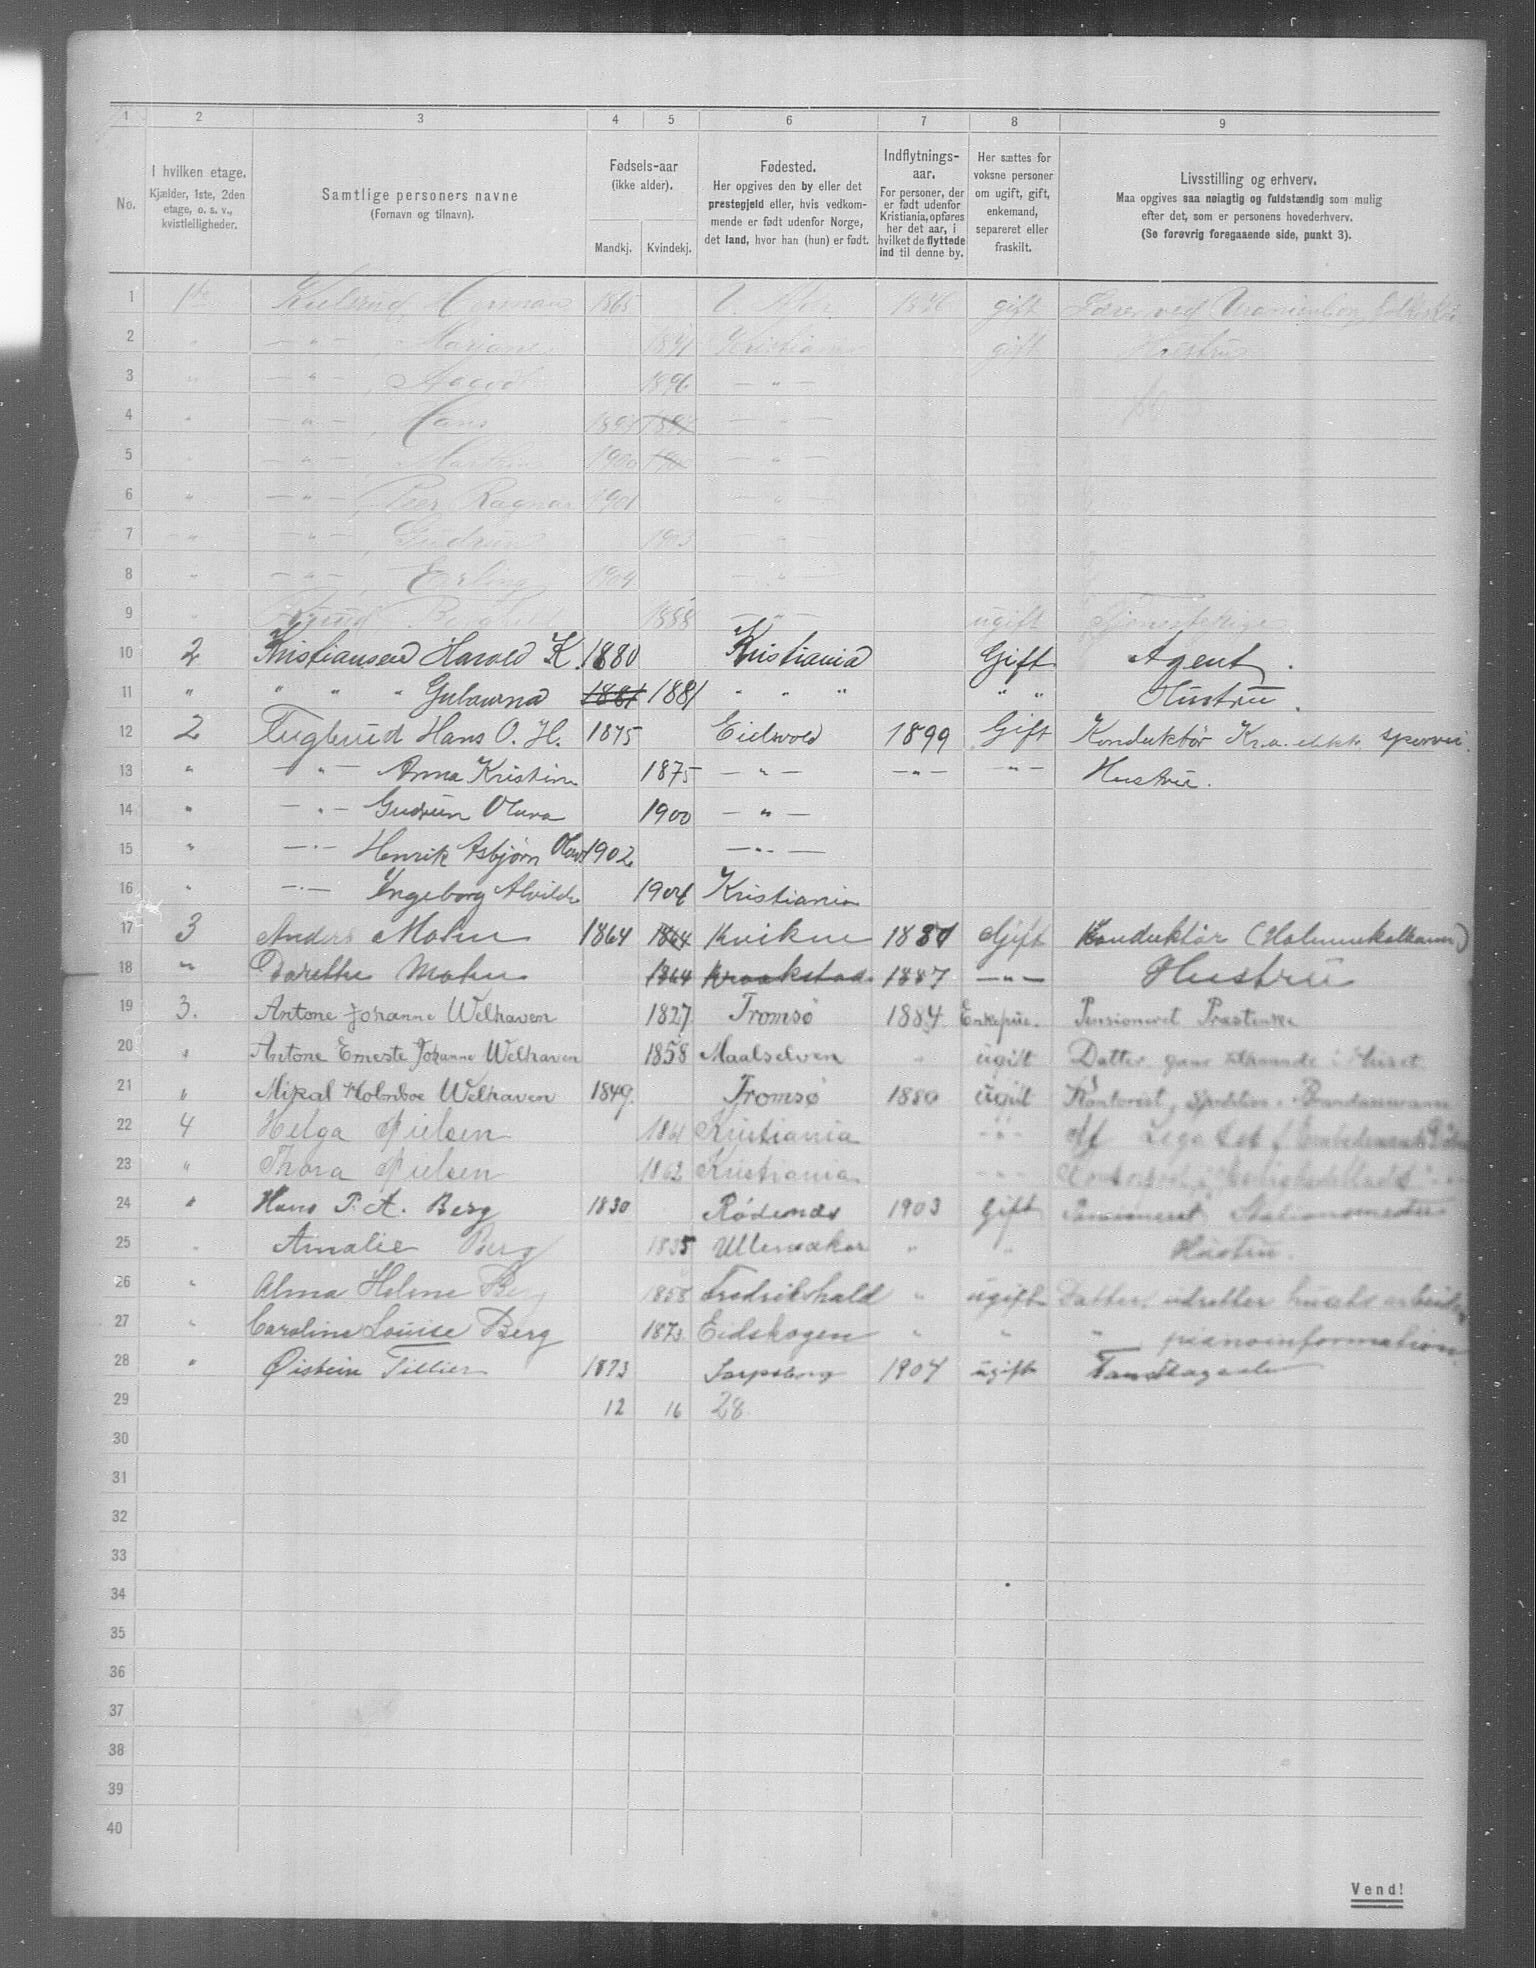 1 2 3 4 5 6 7 8 9
No.
I hvilken etage.
Kjælder, 1ste, 2den
etage, o. s. v.,
kvistleiligheder.
Samtlige personers navne
(Fornavn og tilnavn).
Fødsels-aar
(ikke alder).
Mandkj. Kvindekj.
Fødested.
Her opgives den by eller det
prestegjeld eller, hvis vedkom-
mende er født udenfor Norge,
det land, hvor han (hun) er født.
Indflytnings-
aar.
For personer, der
er født udenfor
Kristiania, opføres
her det aar, i
hvilket de flyttede
ind til denne by.
Her sættes for
voksne personer
om ugift, gift,
enkemand,
separeret eller
fraskilt.
Livsstilling og erhverv.
Maa opgives saa nøiagtig og fuldstændig som mulig
efter det, som er personens hovederhverv.
(Se forøvrig foregaaende side, punkt 3).
1 1ste Herman 1865 gift ved
2 " — " — Kristiania gift Hustru
3 " — " — 1896 — " —
4 " — " — Hans — " —
5 " — " — 1900 — " —
6 " — " — Peer Ragnar 1901 — " —
7 " — " — Gudrun 1903 — " —
8 " — " — Erling 1904 — " —
9 " 1888 — " — ugift
10 2 Kristiansen Harold K. 1880 Kristiania Gift Agent.
11 " " " " 1881 1881 " " " " " Hustru.
12 2 Fuglerud Hans O. H. 1875 Eidsvold 1899 Gift Konduktør Kr.a. elekt. sporvei.
13 " — " — Anna Kristine 1875 — " — — " — — " — Hustru.
14 " — " — Gudrun Olava 1900 — " —
15 " — " — Henrik Asbjørn Olav 1902 — " —
16 " — " — Ingeborg Alvilde 1904 Kristiania
17 3 Anders Mohn 1864 1864 Kvikne 1881 Gift Konduktør
18 " Dorethe Mohn 1864 Kraakstad 1887 — " — Hustru
19 3. Antone Johanne Welhaven 1827 Tromsø 1884 Enkefrue. Pensioneret Prestenke
20 " Antone Erneste Johanne Welhaven 1858 Maalselven " ugift Datter, gaar tilhaande i Huset
21 " Mikal Holmboe Welhaven 1849. Tromsø 1880 ugift Kontorist,
22 4 Helga Nielsen 1861 Kristiania " Af Legatet f.
23 " Thora Nielsen 1862 Kristiania "
24 " Hans P. A. Berg 1830 Rødenæs 1903 Gift Pensioneret Stationsmester
25 " Amalie Berg 1835 Ullensaker " " Hustru.
26 " Alma Helene Berg 1858 Fredrikshald " ugift Datter, udretter husets arbeide
27 " Caroline Louise Berg 1873 Eidskogen " " " pianoinformation
28 " Øistein Tillier 1873 Sarpsborg 1904 ugift Tandlæge
29 12 16 28
30
31
32
33
34
35
36
37
38
39
40
Vend!